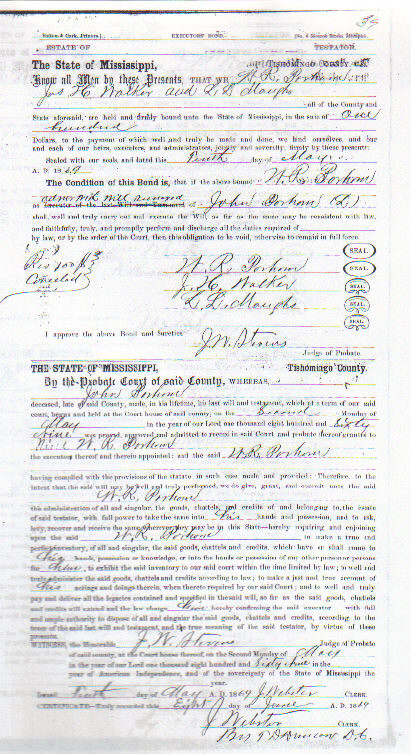 39
EXECUTORS' BOND.
ESTATE OF TESTATOR.
The State of Mississippi, Tishomingo County
Know all Men by these Presents, THAT WE W. R. Porhom
Jas H Walker and L L Maughs
all of the County and
State aforesaid, are held and firmly bound unto the State of Mississippi, in the sum of one
hundred
Dollars, to the payment of which well and truly be made and done, we bind ourselves, and our
and each of our heirs, executors, and administrators, jointly and severally, firmly by these presents:
Sealed with our seals, and dated this Tenth day of May
A. D. 1869
The Condition of this Bond is, that if the above bound W. R. Porhom
as Executor of the last Will and Testament of John Porhom
shall, well and truly carry out and execute the Will, so far as the same may be consistent with law,
and faithfully, truly, and promptly perform and discharge all the duties required of
by law, or by the order of the Court, then this obligation to be void, otherwise to remain in full force.
SEAL.
W. R. Porhom SEAL.
J. H. Walker SEAL.
L. L. Maughs SEAL.
SEAL.
I approve the above Bond and Sureties
J. W. Stovus
Judge of Probate.
THE STATE OF MISSISSIPPI, Tishomingo County.
By the Probate Court of said County, WHEREAS,
John Porhom
deceased, late of said County, made, in his lifetime, his last will and testament, which at a term of our said
court, begun and held at the Court house of said county, on the Second Monday of
May in the year of our Lord one thousand eight hundred and Sixty
Nine was proved, approved and admitted to record in said Court and probate thereof grantes to
W. R. Porhom
the executor thereof and therein appointed: and the said W. R. Porhom
having complied with the provisions of the statute in such case made and provided: Therefore, to the
intent that the said will may be well and truly performed, we do give, grant, and commit unto the said
W. R. Porhom
the administration of all and singular, the goods, chattels, and credits of and belonging to, the estate
of said testator, with full power to take the same into his hands and possession, and to ask,
levy, recover and receive the same wheresoever they may be in this State—hereby requiring and enjoining
upon the said W. R. Porhom to make a true and
perfect inventory, of all and singular, the said goods, chattels and credits, which have or shall come to
his hands, possession or knowledge, or into the hands or possession of any other person or persons
for him, to exhibit the said inventory to our said court within the time limited by law; to well and
truly administer the said goods, chattels and credits according to law; to make a just and true account of
his actings and doings therein, when thereto required by our said Court; and to well and truly
pay and deliver all the legacies contained and specified in the said will, so far as the said goods, chattels
and credits will extend and the law charge him hereby confirming the said executor with full
and ample authority to dispose of all and singular the said goods, chattels and credits, according to the
tenor of the said last will and testament, and the true meaning of the said testator, by virtue of these
presents.
WITNESS, the Honorable J W Stovus Judge of Probate
of said county, at the Court house thereof, on the Second Monday of May
in the year of our Lord one thousand eight hundred and Sixty Nine in the
year of American Independence, and of the sovereignty of the State of Mississippi the
year.
Issued Tenth day of May A. D. 1869 J. Webster CLERK.
CERTIFICATE—Truly recorded this Eight day of June A. D. 1869
J Webster CLERK.
By D. C.